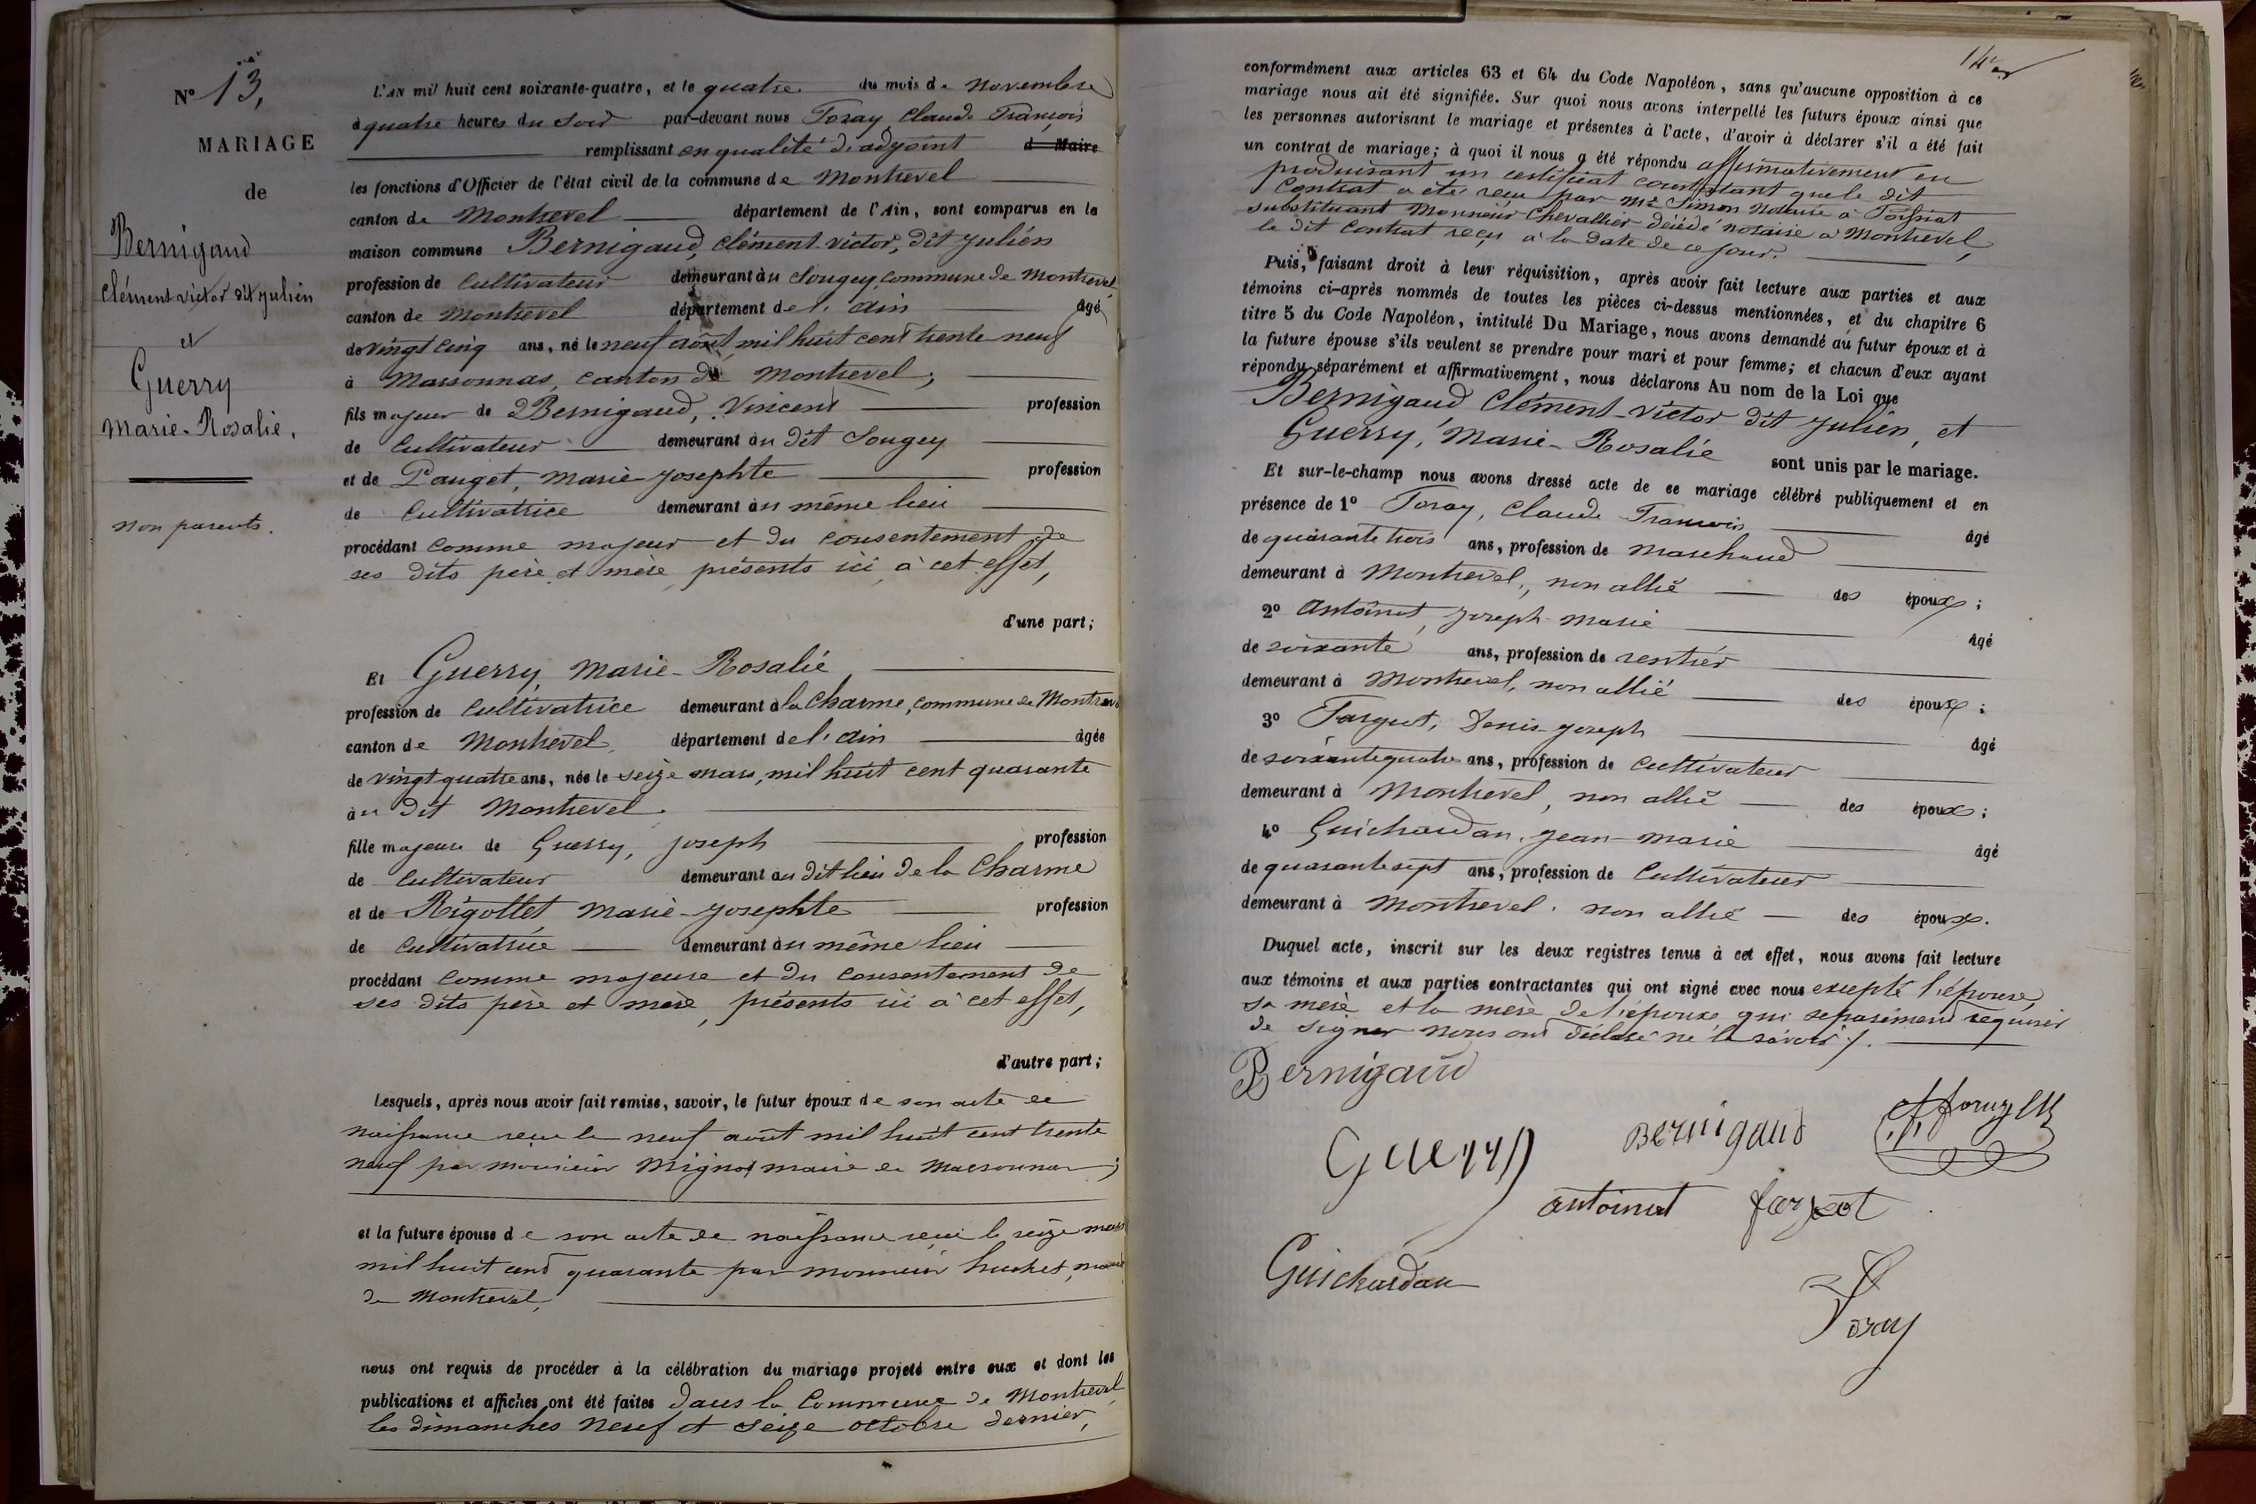 N° 13,
MARIAGE
de
Bernigaud
Clément victor dit julien
et
Guerry
Marie-Rosalie.
non parents.
L'AN mil huit cent soixante-quatre, et le quatre du mois de novembre
à quatre heures du soir par-devant nous Foray Claude François
remplissant en qualité d'adjoint d Maire
les fonctions d'Officier de l'état civil de la commune de Montrevel
canton de Montrevel département de l'Ain, sont comparus en la
maison commune Bernigaud, Clément victor, dit julien
profession de Cultivateur demeurant au Sougey, commune de Montrevel
canton de Montrevel département de l'ain âgé
de vingt cinq ans, né le neuf août mil huit cent trente neuf
à Marsonnas, canton de Montrevel;
fils majeur de Bernigaud, Vincent profession
de Cultivateur demeurant au dit Sougey
et de Pauget, Marie josephte profession
de Cultivatrice demeurant au même lieu
procédant comme majeur et du consentement de
ses dits père et mère, présents ici à cet effet,
d'une part;
Et Guerry, Marie-Rosalie
profession de Cultivatrice demeurant à la Charme, commune de Montrevel
canton de Montrevel, département de l'ain âgée
de vingt quatre ans, née le seize mars, mil huit cent quarante
au dit Montrevel
fille majeure de Guerry, joseph profession
de Cultivateur demeurant au dit lieu de la Charme
et de Rigottet Marie-josephte profession
de Cultivatrice demeurant au même lieu
procédant comme majeure et du consentement de
ses dits père et mère, présents ici à cet effet,
d'autre part;
Lesquels, après nous avoir fait remise, savoir, le futur époux de son acte de
naissance reçu le neuf août mil huit cent trente
neuf par monsieur Mignot maire de Marsonnas;
et la future épouse de son acte de naissance reçu le seize mars
mil huit cent quarante par monsieur huchet, maire
de Montrevel,
nous ont requis de procéder à la célébration du mariage projeté entre eux et dont les
publications et affiches ont été faites dans la Commune de Montrevel
les dimanches neuf et seize octobre dernier,
14
conformément aux articles 63 et 64 du Code Napoléon, sans qu'aucune opposition à ce
mariage nous ait été signifiée. Sur quoi nous avons interpellé les futurs époux ainsi que
les personnes autorisant le mariage et présentes à l'acte, d'avoir à déclarer s'il a été fait
un contrat de mariage; à quoi il nous a été répondu affirmativement en
produisant un certificat constatant que le dit
Contrat a été reçu par Me Simon Notaire à Foissiat
substituant Monsieur Chevallier décédé notaire à Montrevel,
le dit Contrat reçu à la date de ce jour.
Puis, faisant droit à leur réquisition, après avoir fait lecture aux parties et aux
témoins ci-après nommés de toutes les pièces ci-dessus mentionnées, et du chapitre 6
titre 5 du Code Napoléon, intitulé Du Mariage, nous avons demandé au futur époux et à
la future épouse s'ils veulent se prendre pour mari et pour femme; et chacun d'eux ayant
répondu séparément et affirmativement, nous déclarons Au nom de la Loi que
Bernigaud Clément-victor dit julien, et
Guerry, Marie-Rosalie sont unis par le mariage.
Et sur-le-champ nous avons dressé acte de ce mariage célébré publiquement et en
présence de 1° Foray, Claude François âgé
de quarante trois ans, profession de Marchand
demeurant à Montrevel, non allié des époux;
2° Antoinet, joseph-marie âgé
de soixante ans, profession de rentier
demeurant à Montrevel, non allié des époux;
3° Farguot, Denis-joseph âgé
de soixante quatre ans, profession de Cultivateur
demeurant à Montrevel, non allié des époux;
4° Guichardan, jean-marie âgé
de quarante sept ans, profession de Cultivateur
demeurant à Montrevel, non allié des époux.
Duquel acte, inscrit sur les deux registres tenus à cet effet, nous avons fait lecture
aux témoins et aux parties contractantes qui ont signé avec nous excepté l'épouse,
sa mère et la mère de l'époux qui séparément requises
de signer nous ont déclaré ne le savoir.
Bernigaud
Guerry
Bernigaud
antoinet
Guichardan
Foray